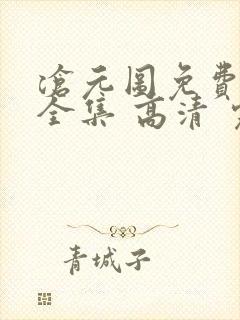 滄元图免費
全集 高清
青城子